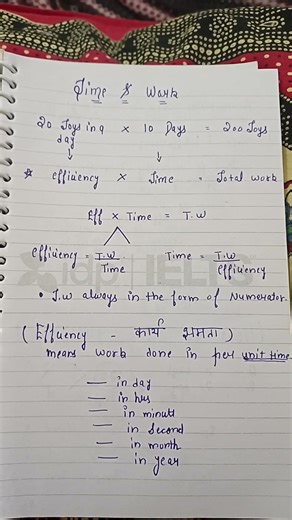 Time & Work
20 Toys in a day × 10 Days = 200 Toys
* efficiency × Time = Total work
Eff × Time = T.W
efficiency = T.W / Time Time = T.W / efficiency
idp IELTS
• T.W always in the form of Numerator.
( Efficiency - कार्य क्षमता )
means work done in per unit time
— in day
— in hrs
— in minute
— in second
— in month
— in year